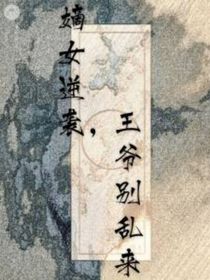 嫡女逆袭，
王爷别乱来